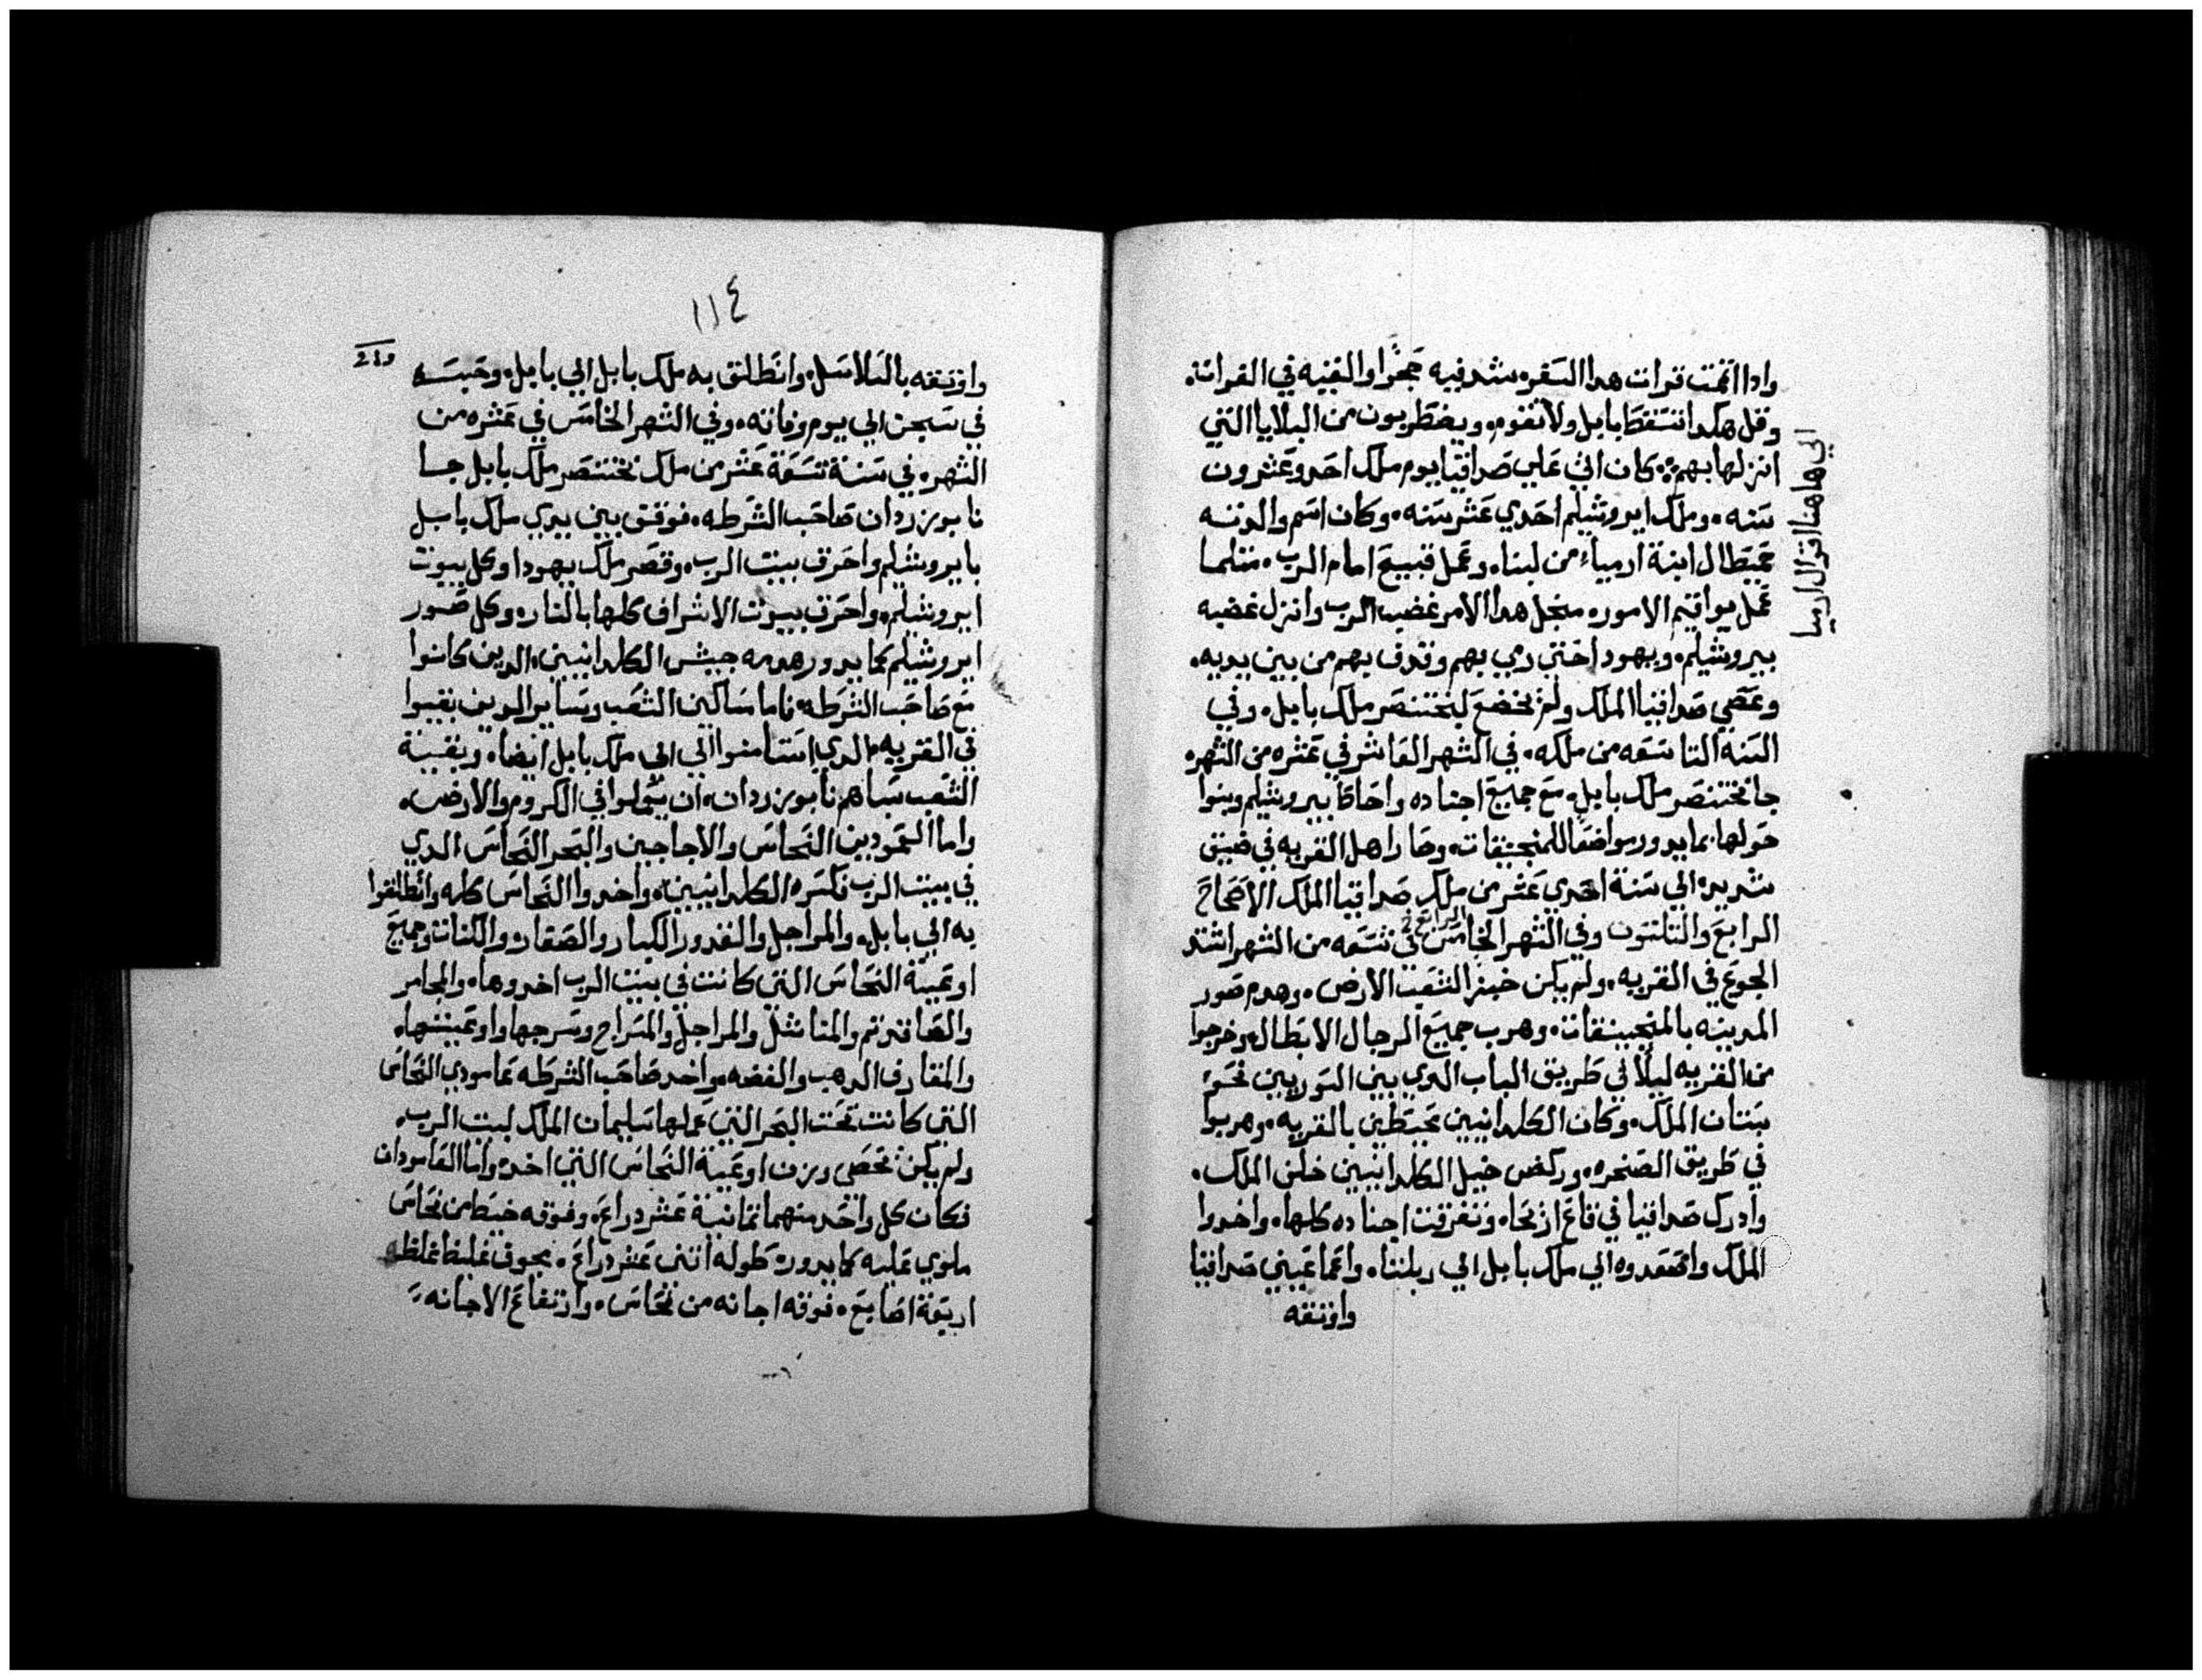 وادا اتممت قرات هدا السفر شد فيه حجرا والقيه في الفرات
وقل هكدا تسقط بابل ولا تقوم ويضطربون من البلايا التي
انزلها بهم كان اتي علي صداقيا يوم ملك احد وعشرون
سنه وملك ايروشليم احدي عشر سنه وكان اسم والدته
حميطال ابنة ارمياء من لبنا وعمل قبيح امام الرب مثلما
عمل يواقيم الامور منجل هدا الامر غضب الرب وانزل غضبه
بيروشليم ويهودا حتي رمي بهم وقدف بهم من بين يديه
وعصي صداقيا الملك ولم يخضع لبختنصر ملك بابل وفي
السنة التاسعه من ملكه في الشهر العاشر في عشره من الشهر
جا بختنصر ملك بابل مع جميع اجناده واحاطا بيروشليم وبنوا
حولها بما يدور مواضعا للمنجنيقات وصار اهل القريه في ضيق
شديد الي سنة احدي عشر من ملك صداقيا الملك الاصحاح
الرابع والتلتون وفي الشهر الخامس الرابع في تسعه من الشهر اشتد
الجوع في القريه ولم يكن خبز لشعب الارض وهدم صور
المدينه بالمنجنيقات وهرب جميع الرجال الابطال وخرجوا
من القريه ليلا في طريق الباب الدي بين السورين نحو
بستان الملك وكان الكلدانيين محيطين بالقريه وهربوا
في طريق الصحره وركض خيل الكلدانيين خلف الملك
وادرك صداقيا في قاع ازنحاه وتفرقت اجناده كلها واخدوا
الملك واصعدوه الي ملك بابل الي ربلتا واعما عيني صداقيا
واوتقه
الي هاهنا اقوال ارميا
١١٤
واوتقه بالسلاسل وانطلق به ملك بابل الي بابل وحبسه
في سجن الي يوم وفاته وفي الشهر الخامس في عشره من
الشهر في سنة تسعة عشر من ملك بختنصر ملك بابل جا
نابوزردان صاحب الشرطه فوقف بين يدي ملك بابل
بايروشليم واحرق بيت الرب وقصر ملك يهودا وكل بيوت
ايروشليم واحرق بيوت الاشراف كلها بالنار وكل صور
ايروشليم كما يدور هدمه جيش الكلدانيين الدين كانوا
مع صاحب الشرطه فاما مساكين الشعب وساير الدين بقيوا
في القريه والدي استامنوا الي ملك بابل ايضا وبقية
الشعب سباهم نابوزردان ان يعملوا في الكروم والارض
واما العمودين النحاس والاجاجين والبحر النحاس الدي
في بيت الرب فكسره الكلدانيين واخدوا النحاس كله وانطلقوا
به الي بابل والمراجل والقدور الكبار والصقان والكنانت وجميع
اوعية النحاس التي كانت في بيت الرب اخدوها والمجامر
والمناشل والمراجل والسراج وسرجها واوعيتها
والمغارف الدهب والفضه واخد صاحب الشرطه عامودي النحاس
التي كانت تحت البحر التي عملها سليمان الملك لبيت الرب
ولم يكن تحصي وزن اوعية النحاس التي اخده واما العامودان
فكان كل واحد منهما تمانية عشر دراع وفوقه خيط من نحاس
ملوي عليه كما يدور طوله اتني عشر دراع مجوف غليظ غلظه
اربعة اصابع فوقه اجانه من نحاس وارتفاع الاجانه